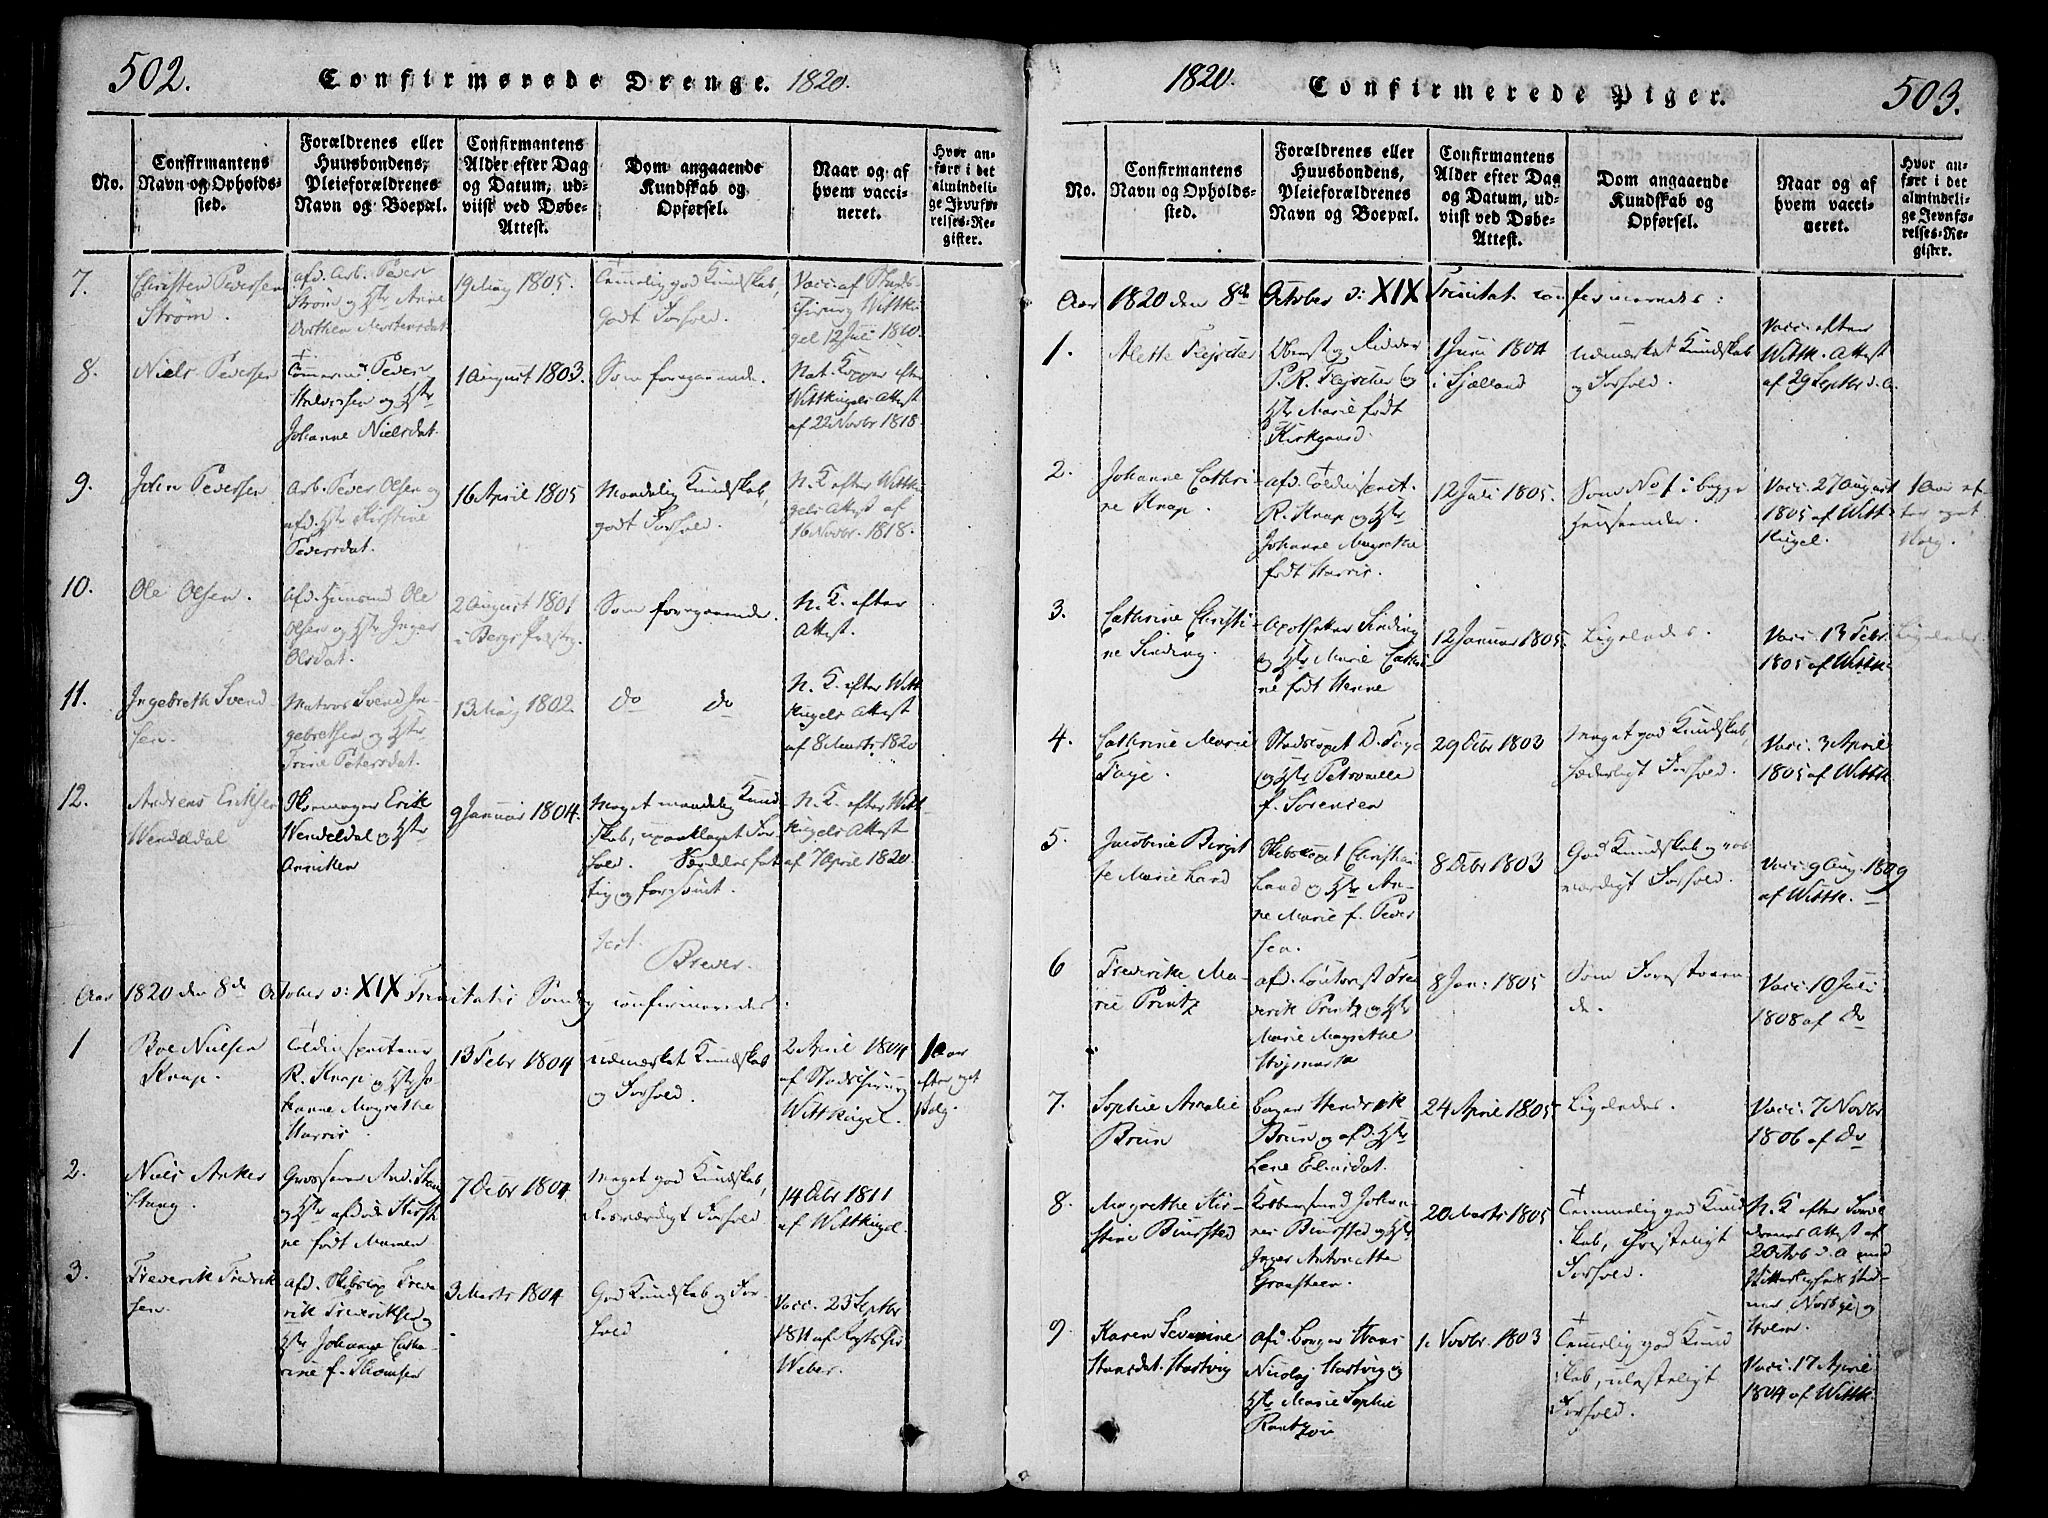 502.
Confirmerede Drenge. 1820.
No.
Confirmantens
Navn og Opholds-
sted.
Forældrenes eller
Huusbondens,
Pleieforældrenes
Navn og Boepæl.
Confirmantens
Alder efter Dag
og Datum, ud-
viist ved Døbe-
Attest.
Dom angaaende
Kundskab og
Opførsel.
Naar og af
hvem vacci-
neret.
Hvor an-
ført i det
almindeli-
ge Jevnfø-
relses-Re-
gister.
7.
Christen Pedersen
Strøm.
afd. Arb. Peder
Strøm og Hstr Anne
Dorthea Mortensdat.
19 May 1805.
Temmelig god Kundskab,
godt Forhold.
Vacc. af Stads
Chirurg Wittku
gel 12 Juli 1810.
8.
Niels Pedersen
Tømmermd. Peder
Halvorsen og Hstr
Johanne Nielsdat.
1 August 1803.
Som foregaaende.
Nat. Kopper efter
Wittkugels Attest
af 22 Novbr 1818.
9.
John Pedersen
Arb. Peder Olsen og
afd. Hstr Kirstine
Pedersdat.
16 April 1805
Maadelig Kundskab,
godt Forhold.
N. K. efter Wittku
gels Attest af
16 Novbr. 1818.
10.
Ole Olsen.
afd. Huusmd Ole
Olsen og Hstr Inger
Olsdat.
2 August 1801
i Bergs Præstg.
Som foregaaende.
N. K. efter
Attest.
11.
Ingebreth Svend
sen.
Matros Svend In-
gebretsen og Hstr
Trine Petersdat.
13 May 1802.
do do
N. K. efter Witt
kugels Attest
af 8 Marts 1820
12.
Andreas Eriksen
Wendeldal
Skomager Erik
Wendeldal og Hstr
Anniken
9 Januar 1804.
Meget maadelig Kund
skab, upaaklaget For
hold.
tig og forsømt.
N. K. efter Witt-
kugels Attest
af 7 April 1820.
Brever.
Aar 1820 den 8de October d: XIX Trinitatis Søndg confirmeredes:
1
Boe Nielsen
Knap.
Toldinspecteur
R. Knap og Hstr Jo-
hanne Magrethe
Harris.
13 Febr 1804
udmærket Kundskab
og Forhold.
2 April 1804
af Stadschirurg
Wittkugel.
1 Aar
efter eget
Valg.
2.
Niels Anker
Stang.
Grosserer And. Stang
og Hstr afdøde Kirsti
ne født Mamen
7 Octbr 1804.
Meget god Kundskab,
Roesværdigt Forhold
14 Octbr 1811
af Wittkugel
3.
Frederik Fredrik
sen.
afd. Skibscap Frede
rik Frederiksen og
Hstr Johanne Catha-
rine f. Thomsen
3 Marts 1804
God Kundskab og For-
hold
Vacc. 23 Septbr
1811 af
Weber.
1820.
Confirmerede Piger.
503.
No.
Confirmantens
Navn og Opholds-
sted.
Forældrenes eller
Huusbondens,
Pleieforældrenes
Navn og Boepæl.
Confirmantens
Alder efter Dag
og Datum, ud-
viist ved Døbe-
Attest.
Dom angaaende
Kundskab og
Opførsel.
Naar og af
hvem vacci-
neret.
Hvor an-
ført i det
almindeli-
ge Jevnfø-
relses-Re-
gister.
Aar 1820 den 8de October d: XIX Trinitat. confirmeredes:
1.
Alette Flejscher
Oberst og Ridder
P. R. Flejscher og
Hstr Marie født
Kirkgaard.
1 Juni 1804
i Sjælland
Udmærket Kundskab
og Forhold.
Vacc. efter
Wittk. Attest
af 29 Septbr d. A.
2.
Johanne Cathri-
ne Knap.
afd. Toldinspect.
R. Knap og Hstr
Johanne Magrethe
født Harris.
12 Juli 1805.
Som No 1 i begge
Henseender.
Vacc. 27 August
1805 af Witt-
kugel.
1 Aar ef-
ter eget
Valg.
3.
Cathrine Christi-
ne Sinding.
Apotheker Sinding
og Hstr Marie Cathri
ne født Henne
12 Januar 1805.
Ligeledes.
Vacc. 13 Febr.
1805 af Wittk.
Ligeledes.
4.
Cathrine Marie
Faye.
Stadscapt D. Faye
og Hstr Petronelle
f. Sørensen
29 Octbr 1803
Meget god Kundskab,
hæderligt Forhold.
Vacc. 3 April
1805 af Wittk.
5.
Jacobine Birgit
te Marie Lund
Skibscapt Christian
Lund og Hstr An-
ne Marie f. Peder
sen.
8 Octbr 1803
God Kundskab og roes
værdigt Forhold.
Vacc. 9 Aug. 1809
af Wittk.
6
Frederikke Ma-
rie Printz
afd. Contorist Fre
derik Printz og Hstr
Marie Magrethe
8 Jan: 1805
Som Forestaaen
de.
Vacc. 10 Juli
1808 af do
7.
Sophie Amalie
Bruun
Borger Hendrik
Bruun og afd. Hstr
Lene Eliasdat.
24 April 1805
Ligeledes.
Vacc. 7 Novbr
1806 af do
8.
Magrethe Kir-
stine Biursted
Kobbersmed Johan-
nes Biursted og Hstr
Inger Antonette
Graasteen.
20 Marts 1805
Temmelig god Kund
skab, Christeligt
Forhold.
N. K efter
Attest af
2 Octob d. A med
9
Karen Severine
Hansdat. Hartvig
afd. Borger Hans
Nicolaj Hartvig og
Hstr Marie Sophie
Rantzou
1. Novbr. 1803
Temmelig god Kund
skab, ulasteligt
Forhold.
Vacc. 17 April
1804 af Wittk.